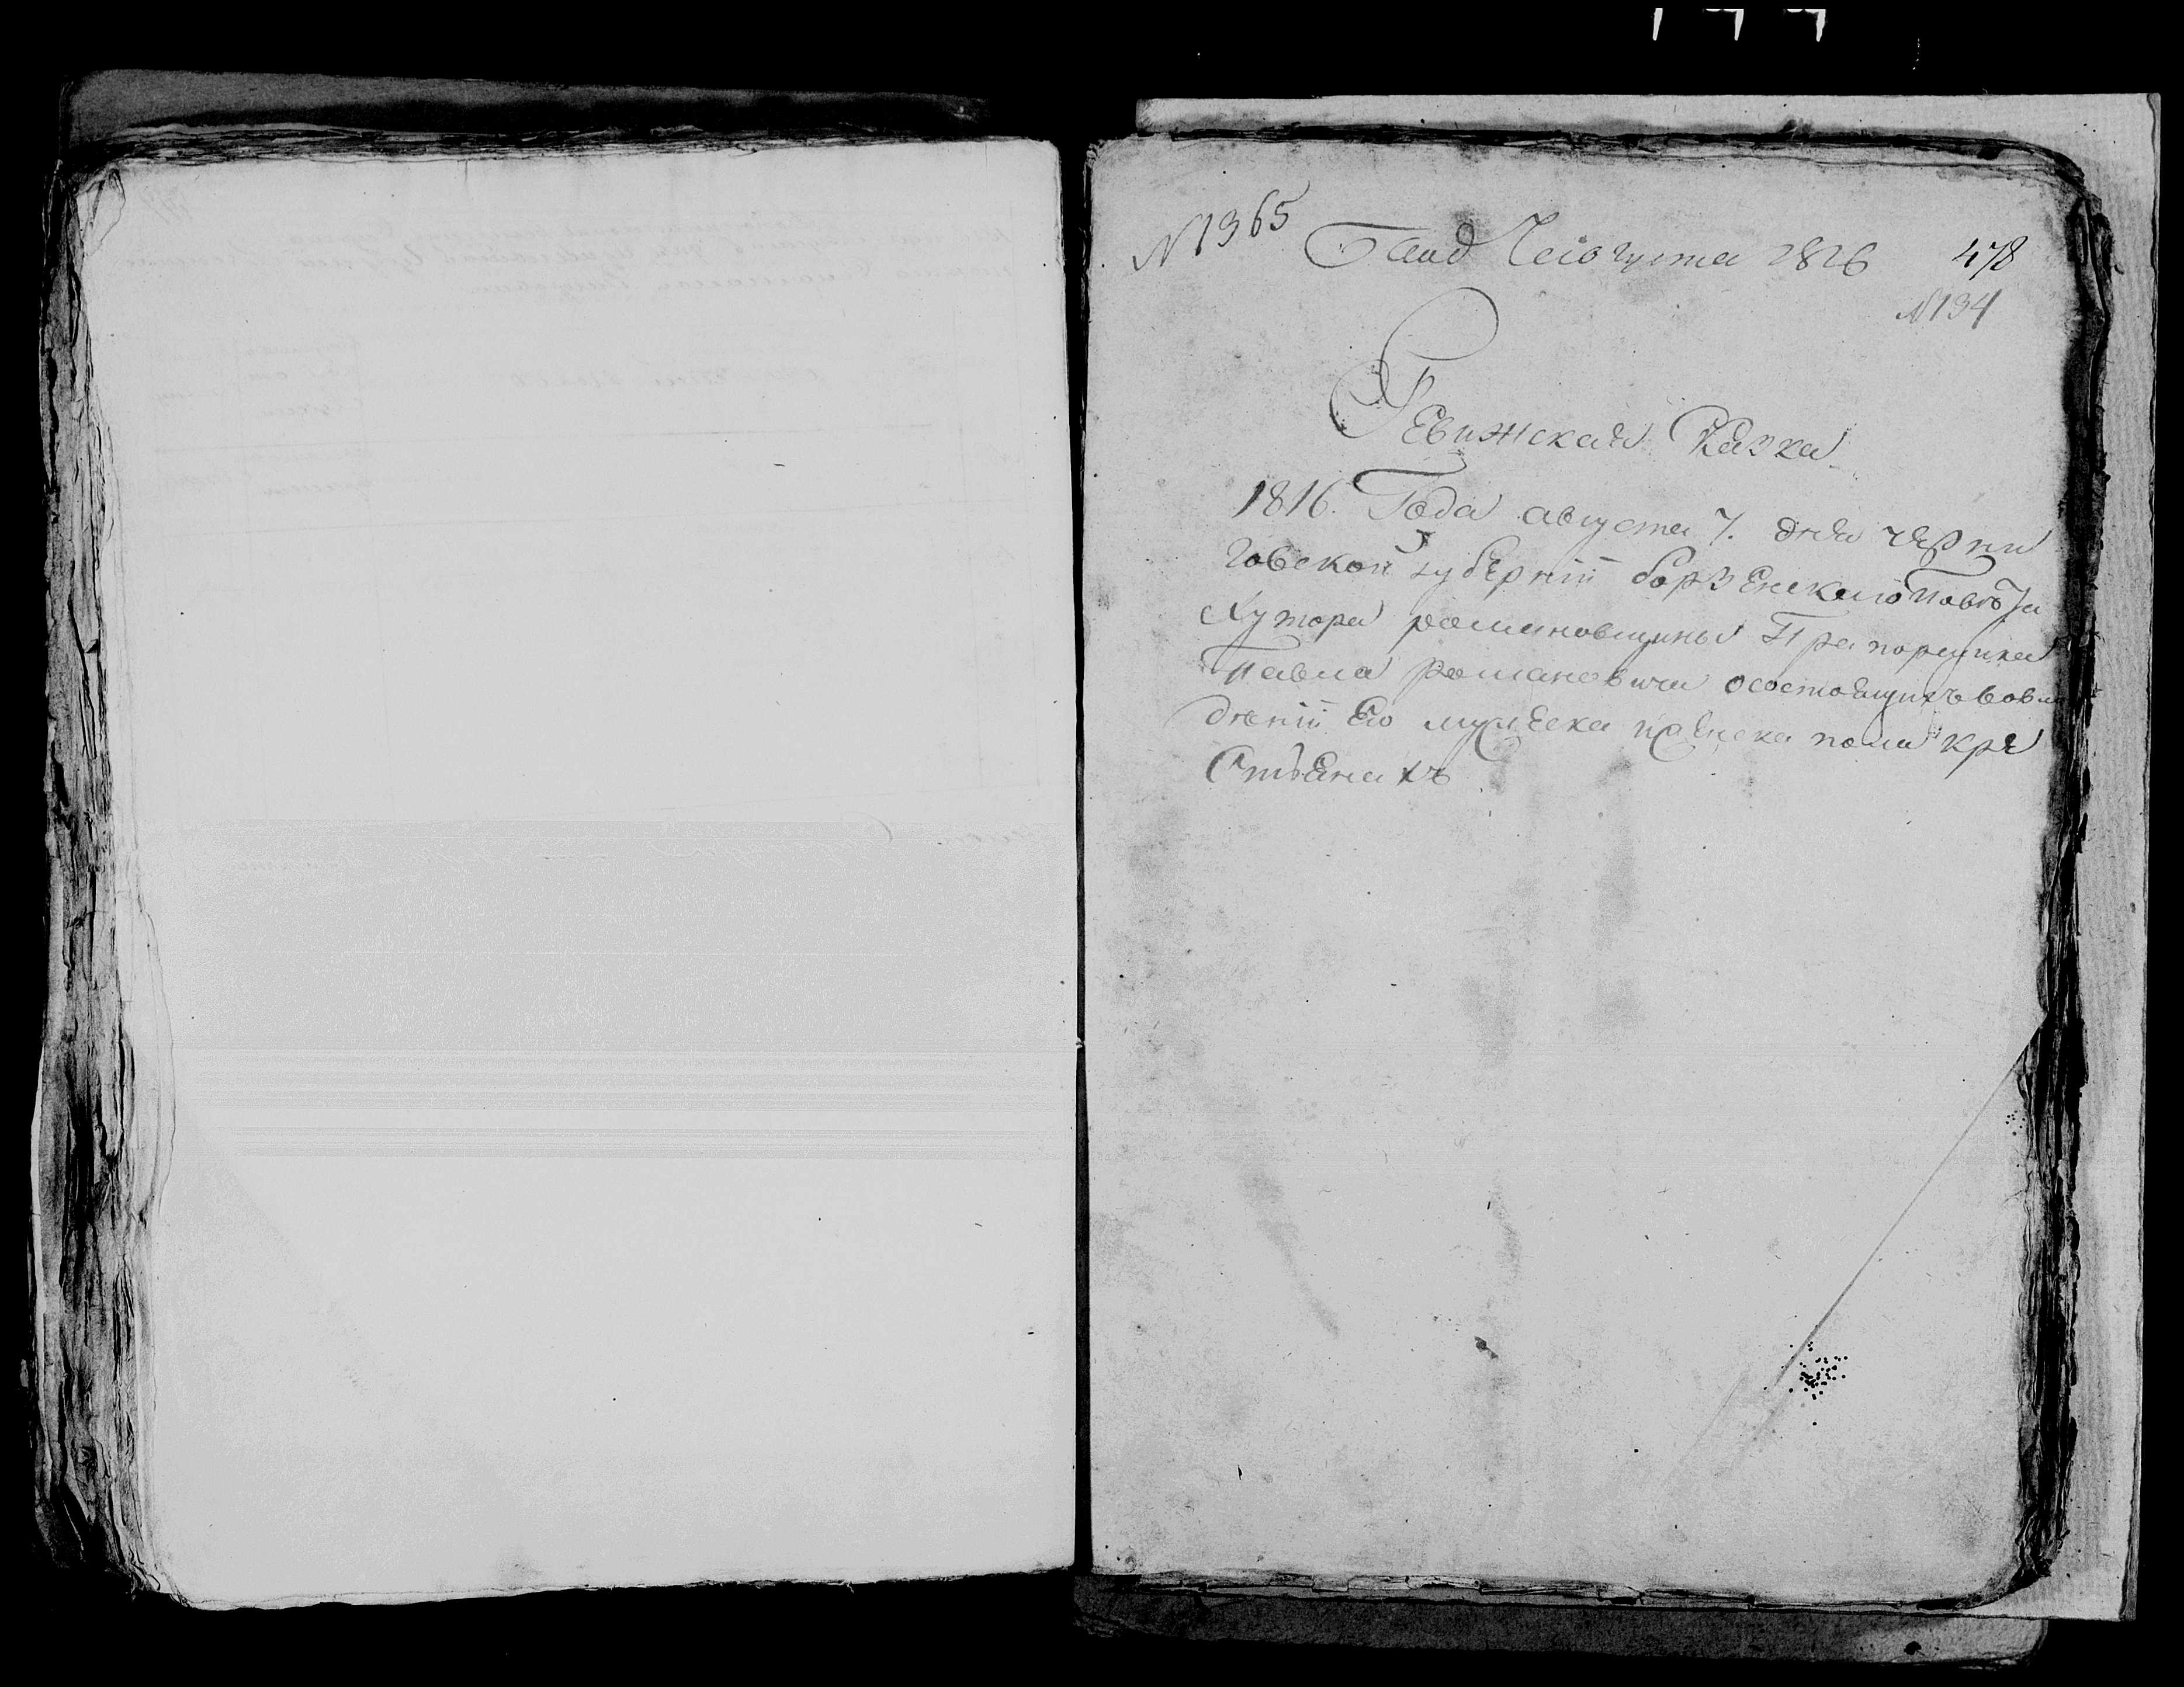 №1365
августа 1816
478
№134
Ревижская Сказка
1816. Года августа 7. дня черни
говской губернїи борзенского повѣта
Хутора романовщины Прапорщика
Павла романовича осостоящихъ вовла
дѣнїи Его мужеска иженска пола кре
стьянахъ